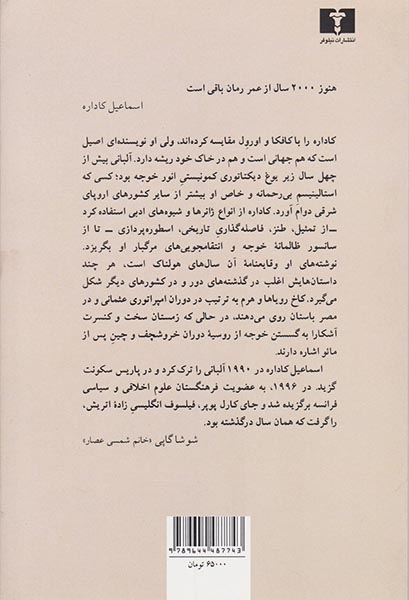 انتشارات نیلوفر
هنوز ۲۰۰۰ سال از عمر رمان باقی است
اسماعیل کاداره
کاداره را با کافکا و اورول مقایسه کرده‌اند، ولی او نویسنده‌ای اصیل
است که هم جهانی است و هم در خاک خود ریشه دارد. آلبانی بیش از
چهل سال زیر یوغ دیکتاتوری کمونیستیِ انور خوجه بود؛ کسی که
استالینیسم بی‌رحمانه و خاص او بیشتر از سایر کشورهای اروپای
شرقی دوام آورد. کاداره از انواع ژانرها و شیوه‌های ادبی استفاده کرد
ــ از تمثیل، طنز، فاصله‌گذاری تاریخی، اسطوره‌پردازی ــ تا از
سانسور ظالمانهٔ خوجه و انتقامجویی‌های مرگبار او بگریزد.
نوشته‌های او وقایعنامهٔ آن سال‌های هولناک است، هر چند
داستان‌هایش اغلب در گذشته‌های دور و در کشورهای دیگر شکل
می‌گیرد. کاخ رویاها و هرم به ترتیب در دوران امپراتوری عثمانی و در
مصر باستان روی می‌دهند، در حالی که زمستان سخت و کنسرت
آشکارا به گسستن خوجه از روسیهٔ دوران خروشچف و چینِ پس از
مائو اشاره دارند.
اسماعیل کاداره در ۱۹۹۰ آلبانی را ترک کرد و در پاریس سکونت
گزید. در ۱۹۹۶، به عضویت فرهنگستان علوم اخلاقی و سیاسی
فرانسه برگزیده شد و جای کارل پوپر، فیلسوف انگلیسیِ زادهٔ اتریش،
را گرفت که همان سال درگذشته بود.
شوشا گاپی «خانم شمسی عصار»
9 789644 487743
۶۵۰۰۰ تومان